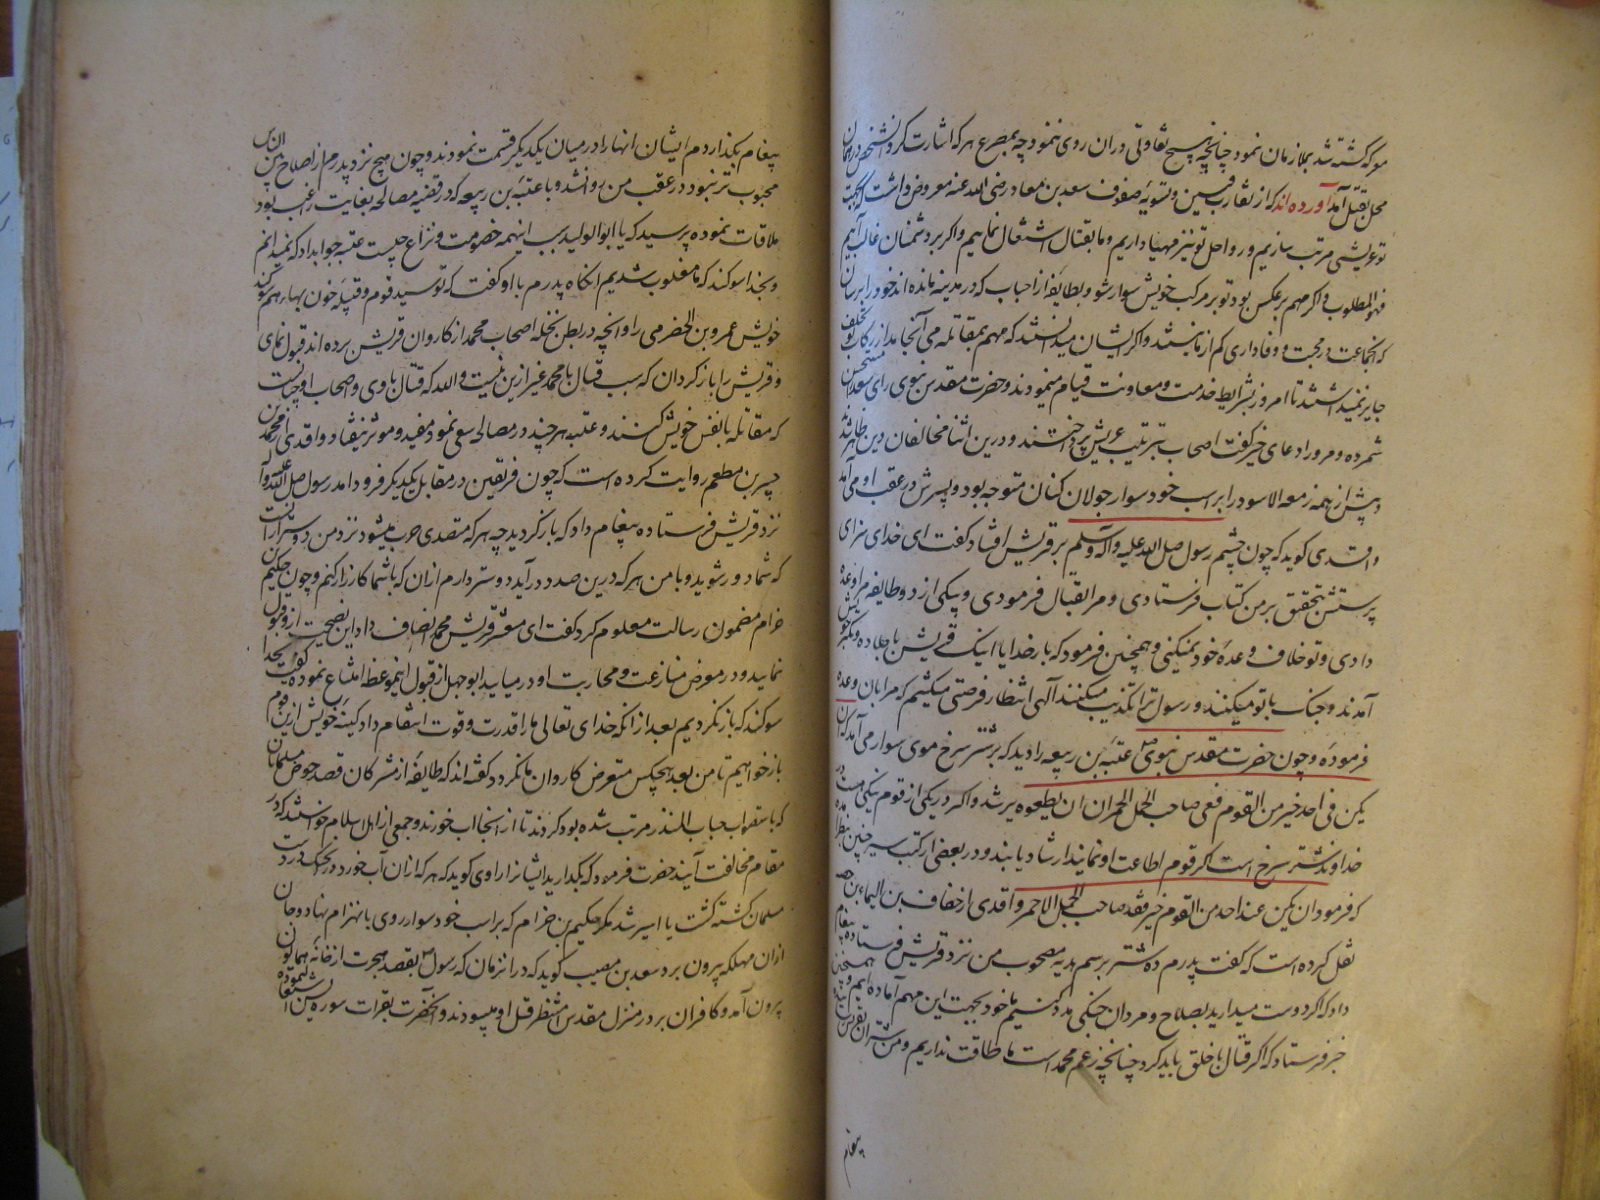 موکه کشته شد بملازمان نمود چنانچه هیچ تفاوتی دران روی ننمود چه بمصرع هر که اشارت کرد آنشخص در همان
محل بقتل آمد آورده اند که از تقارب فئتین و تسویه صفوف سعد بن معاد رضی الله عنه معروض داشت که بجهت
تو عریشی مرتب سازیم و رواحل تو نیز مهیا داریم و ما بقتال اشتغال نماییم و اکر بر دشمنان غالب آییم
فهو المطلوب و اکر مهم برعکس بود تو بر مرکب خویش سوار شو و بطایفه از احباب که در مدینه مانده اند خود را برسان
که آنجماعت در محبت و وفاداری کم از ما نیستند و اکر ایشان میدانستند که مهم بمقاتله می آنجامد از رکاب تو تخلف
جایز نمیداشتند تا امروز بشرایط خدمت و معاونت قیام مینمودند و حضرت مقدس نبوی رای سعد را مستحسن
شمرده و مر او را دعای خیر کفت اصحاب بترتیب عریش پرداختند و درین اثنا مخالفان دین ظاهر شدند
و پیش از همه زمعه الاسود را بر اسب خود سوار جولان کنان متوجه بود و پسرش در عقب او می آمد
واقدی کوید که چون چشم رسول صلی الله علیه و آله وسلم بر قریش افتاد کفت ای خدای سزای
پرستش بتحقق بر من کتاب فرستادی و مرا بقتال فرمودی و یکی از دو طایفه مرا وعده
دادی و تو خلاف وعده خود نمیکنی و همچنین فرمود که بار خدایا اینک قریش با جلاده و تکبر خویش
آمدند و جنک با تو میکنند و رسول ترا تکذیب میکنند الهی انتظار فرصتی میکشم که مرا بان وعده
فرموده و چون حضرت مقدس نبوی عتبه بن ربیعه را دید که بر شتر سرخ موی سوار می آمد که ان
یکن فی احد خیر من القوم ففی صاحب الجمل الاحمر ان یطیعوه یرشد و اکر در یکی از قوم نیکی هست در
خداوند شتر سرخ است اکر قوم اطاعت او نمایند ارشاد یابند و در بعضی از کتب سیر چنین بنظر آمده
که فرمود ان یکن عند احد من القوم خیر فعند صاحب الجمل الاحمر واقدی از خفاف بن الیماء بن رحصه
نقل کرده است که کفت پدرم ده شتر برسم هدیه مصحوب من نزد قریش فرستاده پیغام
داد که اکر دوست میدارید بصلاح و مردان جنکی مدد کنیم ما خود بجهت این مهم آماده ایم و همچنین
خبر فرستاد که اکر قتال با خلق باید کرد چنانچه زعم محمد است ما طاقت نداریم و من شتران بقریش
پیغام
پیغام بکذاردم ایشان انها را در میان یکدیکر قسمت نمودند و چون هیچ نزد پدرم از اصلاح بین الناس
محبوب تر نبود در عقب من روانشد و با عتبه بن ربیعه که در قضیه مصالحه بغایت راغب بود
ملاقات نموده پرسید که یا ابو الولید سبب اینهمه خصومت و نزاع چیست عتبه جوابداد که نمیدانم
و بخدا سوکند که ما مغلوب شدیم انکاه پدرم با او کفت که تو سید قوم و قبیله خون بهاء هم سوکند
خویش عمرو بن الحضرمی را و انچه در بطن نخله اصحاب محمد از کاروان قریش برده اند قبول نمای
و قریش را باز کردان که سبب قتال با محمد غیر ازین نیست و الله که قتال با وی و اصحاب او چنانست
که مقاتله با نفس خویش کنند و عتبه هر چند در مصالحه سعی نمود مفید و موثر نیفتاد واقدی از محمد بن
جبیر بن مطعم روایت کرده است که چون فریقین در مقابل یکدیکر فرود امد رسول صلی الله علیه و آله
نزد قریش فرستاده پیغام داد که باز کردید چه هر که متصدی حرب میشود نزد من دوستر ازانست
که شما دور شوید و با من هر که درین صدد درآید دوستر دارم ازان که با شما کارزار کنم و چون حکیم
حزام مضمون رسالت معلوم کرد کفت ای معشر قریش محمد انصاف داد این نصیحت ازو قبول
نمایید و در معرض منازعت و محاربت او درمیایید ابوجهل از قبول اینموعظه امتناع نموده کفت بخدا
سوکند که باز نکردیم بعد از انکه خدای تعالی ما را قدرت و قوت انتقام داد کینه خویش ازین قوم
بازخواهیم تا من بعد هیچکس متعرض کاروان ما نکردد کفته اند که طایفه از مشرکان قصد حوض مسلمانان
که باستصواب حباب المنذر مرتب شده بود کردند تا از انجا اب خورند و جمعی از اهل اسلام خواستند که در
مقام مخالفت آیند حضرت فرمود که بکذارید ایشانرا راوی کوید که هر که ازان آب خورد در جنک در دست
مسلمان کشته کشت یا اسیر شد مکر حکیم بن حزام که بر اسب خود سوار روی بانهزام نهاد و جان
ازان مهلکه بیرون برد سعد بن مسیب کوید که در انزمان که رسول بقصد هجرت از خانه همایون
بیرون آمد و کافران بر در منزل مقدس منتظر قتل او میبودند و آنحضرت بقرات سوره یس اشتغال نموده